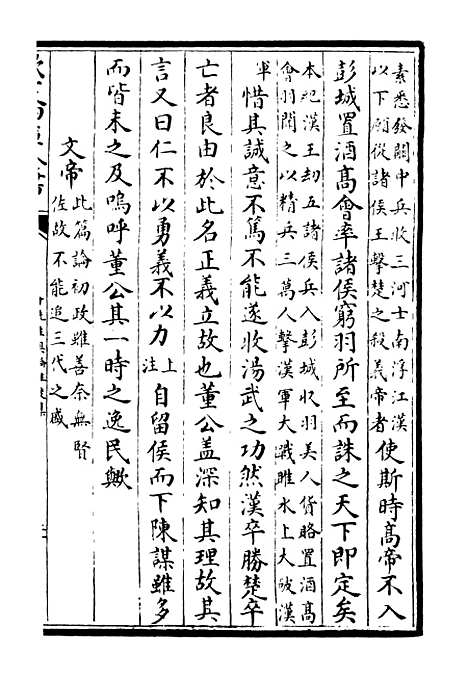 素悉發關中兵收三河士南浮江漢
以下願從諸侯王擊楚之殺義帝者
使斯時髙帝不入
彭城置酒髙會率諸侯窮羽所至而誅之天下即定矣
本紀漢王刼五諸侯兵入彭城收羽美人貨賂置酒髙
會羽聞之以精兵三萬人擊漢軍大戰睢水上大破漢
軍
惜其誠意不篤不能遂收湯武之功然漢卒勝楚卒
亡者良由於此名正義立故也董公盖深知其理故其
言又曰仁不以勇義不以力
上
注
自留侯而下陳謀雖多
而皆未之及嗚呼董公其一時之逸民歟
文帝
此篇論初政雖善奈無賢
佐故不能追三代之盛